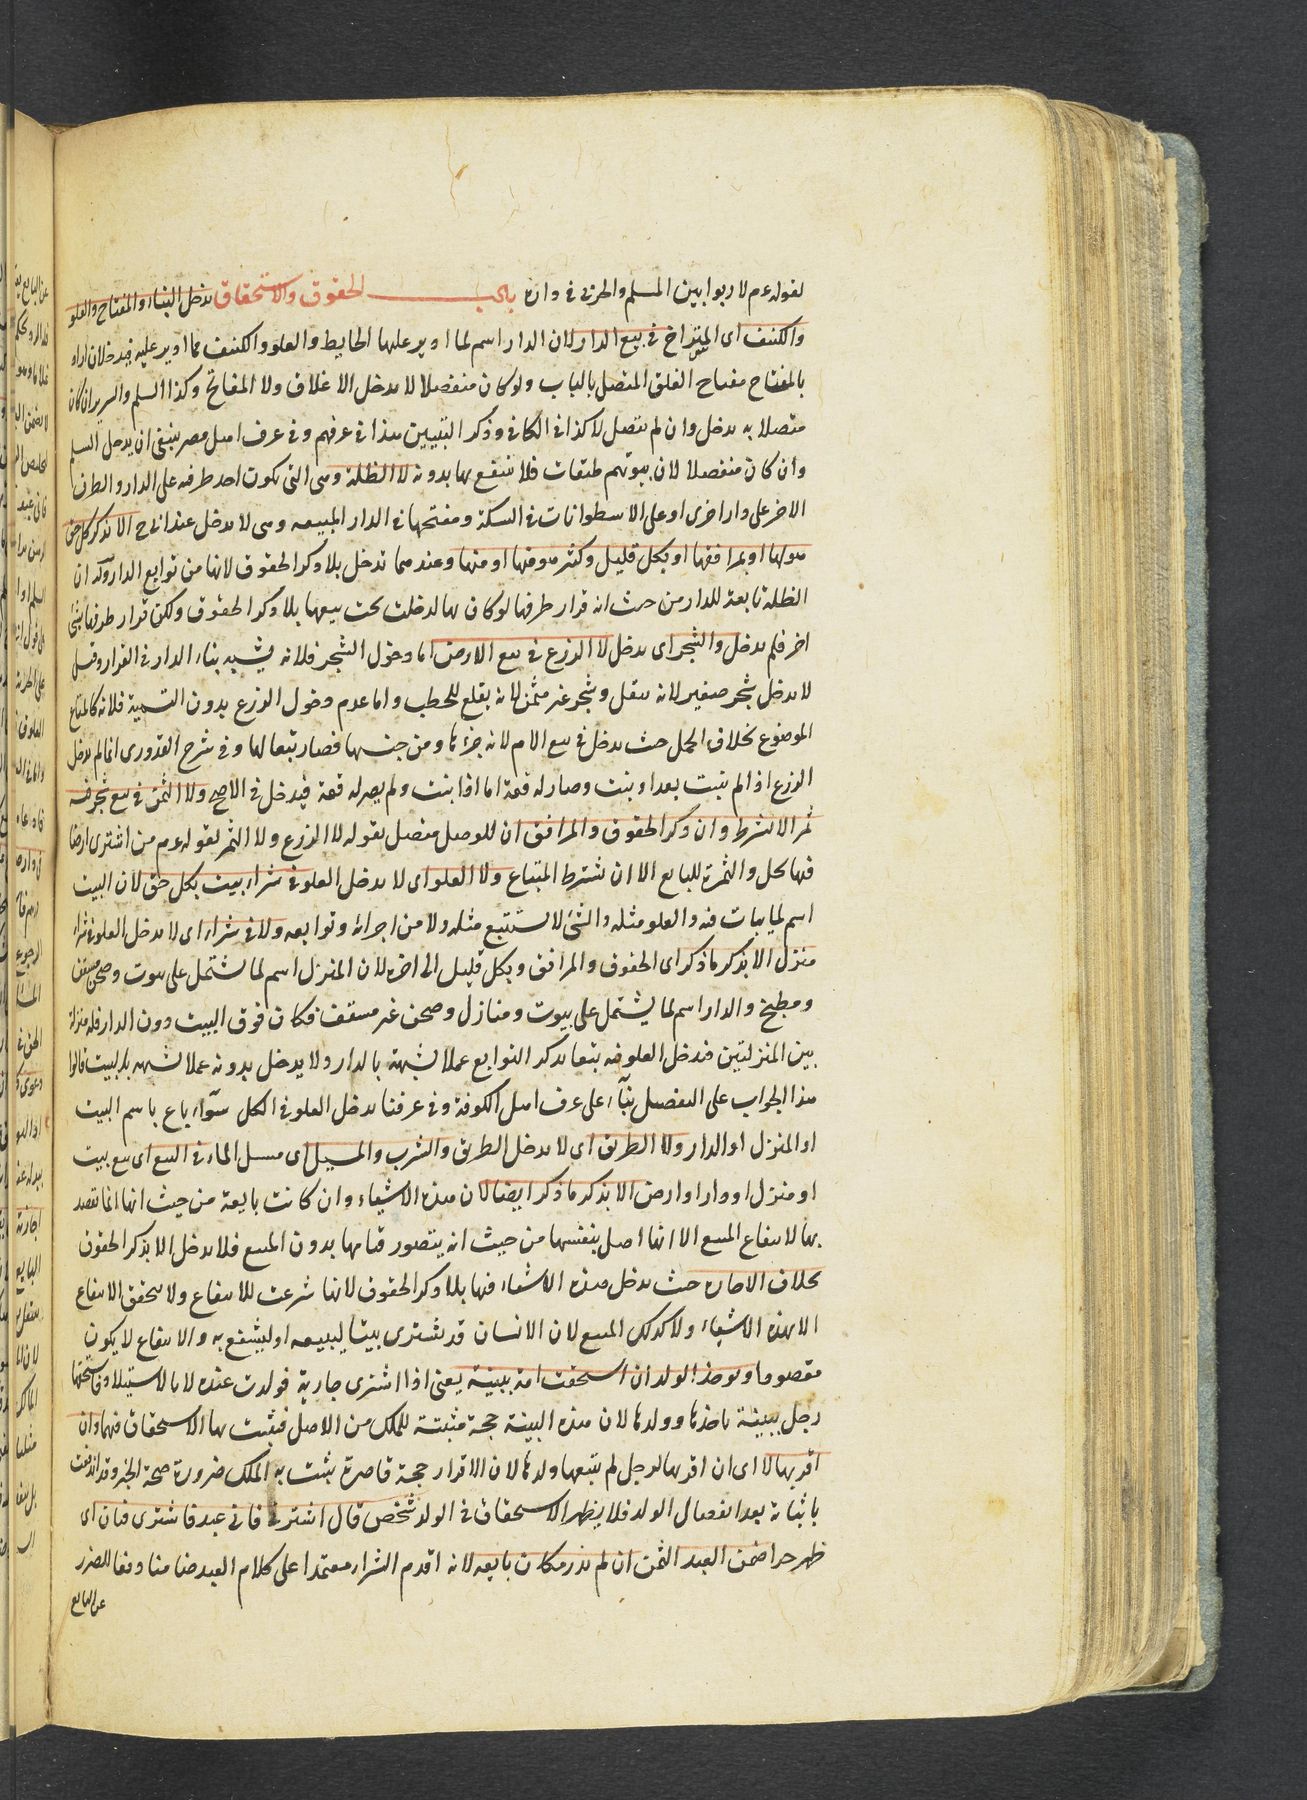 لقوله عم لا ربوا بين المسلم والحربى فى داره باب الحقوق والاستحقاق يدخل البناء والمفتاح والعلو
والكنيف اى المتراخ فى بيع الدار لان الدار اسم لما ادير عليها الحايط والعلو والكنيف مما ادير عليه فيدخلان اراد
بالمفتاح مفتاح الغلق المتصل بالباب ولو كان منفصلا لا يدخل الاغلاق ولا المفاتح وكذا السلم والسرير ان كان
متصلا به يدخل وان لم يتصل لا كذا فى الكافى وذكر التبيين هذا فى عرفهم وفى عرف اهل مصر ينبغى ان يدخل السلم
وان كان منفصلا لان بيوتهم طبقات فلا ينتفع بها بدونه لا الظلة وهى التى يكون احد طرفيه على الدار والطرف
الاخر على دار اخرى او على الاسطوانات فى السكة ومفتحها فى الدار المبيعه وهى لا يدخل عند ابى ح الا بذكر كل حق
هولها او بمرافقها او بكل قليل وكثير هو فيها او منها وعندهما تدخل بلا ذكر الحقوق لانها من توابع الدار وله ان
الظلة تابعة للدار من حيث ان قرار طرفها لو كان بها لدخلت تحت بيعها بلا ذكر الحقوق ولكن قرار طرفها بشئ
اخر فلم يدخل والشجر اى يدخل لا الزرع فى بيع الارض اما دخول الشجر فلانه يشبه بناء الدار فى القرار وقيل
لا يدخل شجر صغير لانه ينقل وشجر غير مثمر لانه يقلع للحطب واما عدم دخول الزرع بدون التسمية فلانه كالمتاع
الموضوع بخلاف الحمل حيث يدخل فى بيع الام لانه جزئها ومن جنسها فصار تبعا لها وفى شرح القدورى انما لم يدخل
الزرع اذا لم ينبت بعد او نبت وصار له قيمة اما اذا نبت ولم يصر له قيمة فيدخل فى الاصح ولا الثمر فى بيع شجر فيه
ثمر الا بشرط وان ذكر الحقوق والمرافق ان للوصل متصل بقوله لا الزرع ولا الثمر لقوله عم من اشترى ارضا
فيها نخل والثمرة للبايع الا ان يشترط المبتاع ولا العلو اى لا يدخل العلو فى شراء بيت بكل حق لان البيت
اسم لما يبات فيه والعلو مثله والشئ لا يستتبع مثله ولا من اجزائه وتوابعه ولا فى شراء اى لا يدخل العلو فى شراء
منزل الا بذكر ما ذكر اى الحقوق والمرافق وبكل قليل الى اخره لان المنزل اسم لما يشتمل على بيوت وصحن مسقف
ومطبخ والدار اسم لما يشتمل على بيوت ومنازل وصحن غير مسقف فكان فوق البيت دون الدار فله منزلة
بين المنزلتين فيدخل العلو فيه تبعا بذكر التوابع عملا بشبهة بالدار ولا يدخل بدونه عملا بشبهه بالبيت قالوا
هذا الجواب على التفصيل بناء على عرف اهل الكوفة وفى عرفنا يدخل العلو فى الكل سواء باع باسم البيت
او المنزل او الدار ولا الطريق اى لا يدخل الطريق والشرب والمسيل اى مسيل الماء فى البيع اى بيع بيت
او منزل او دار او ارض الا بذكر ما ذكر ايضا لان هذه الاشياء وان كانت تابعة من حيث انها انما تقصد
بها لانتفاع المبيع الا انها اصل بنفسها من حيث انه يتصور قيامها بدون المبيع فلا يدخل الا بذكر الحقوق
بخلاف الاجاره حيث يدخل هذه الاشياء فيها بلا ذكر الحقوق لانها شرعت للانتفاع ولا يتحقق الانتفاع
الا بهذه الاشياء ولا كذلك المبيع لان الانسان قد يشترى بيتا ليبيعه او ليشفع به والانتفاع لا يكون
مقصودا ويوخذ الولد ان استحقت امة ببينة يعنى اذا اشترى جارية فولدت عنده لا بالاستيلاد فاستحقها
رجل ببينة ياخذها وولدها لان هذه البينة حجة مثبتة للملك من الاصل فيثبت بها الاستحقاق فيهما وان
اقر بها لا اى ان اقر بها لرجل لم يتبعها ولدها لان الاقرار حجة قاصرة يثبت به الملك ضرورة صحة الخبر وقد اندفعت
باثباته بعد انفصال الولد فلا يظهر الاستحقاق فى الولد شخص قال اشترنى فانى عبد فاشترى فبان اى
ظهر حرا ضمن العبد الثمن ان لم يدر مكان بايعه لانه اقدم الشراء معتمدا على كلام العبد ضامنا دفعا للضرر
عن البايع